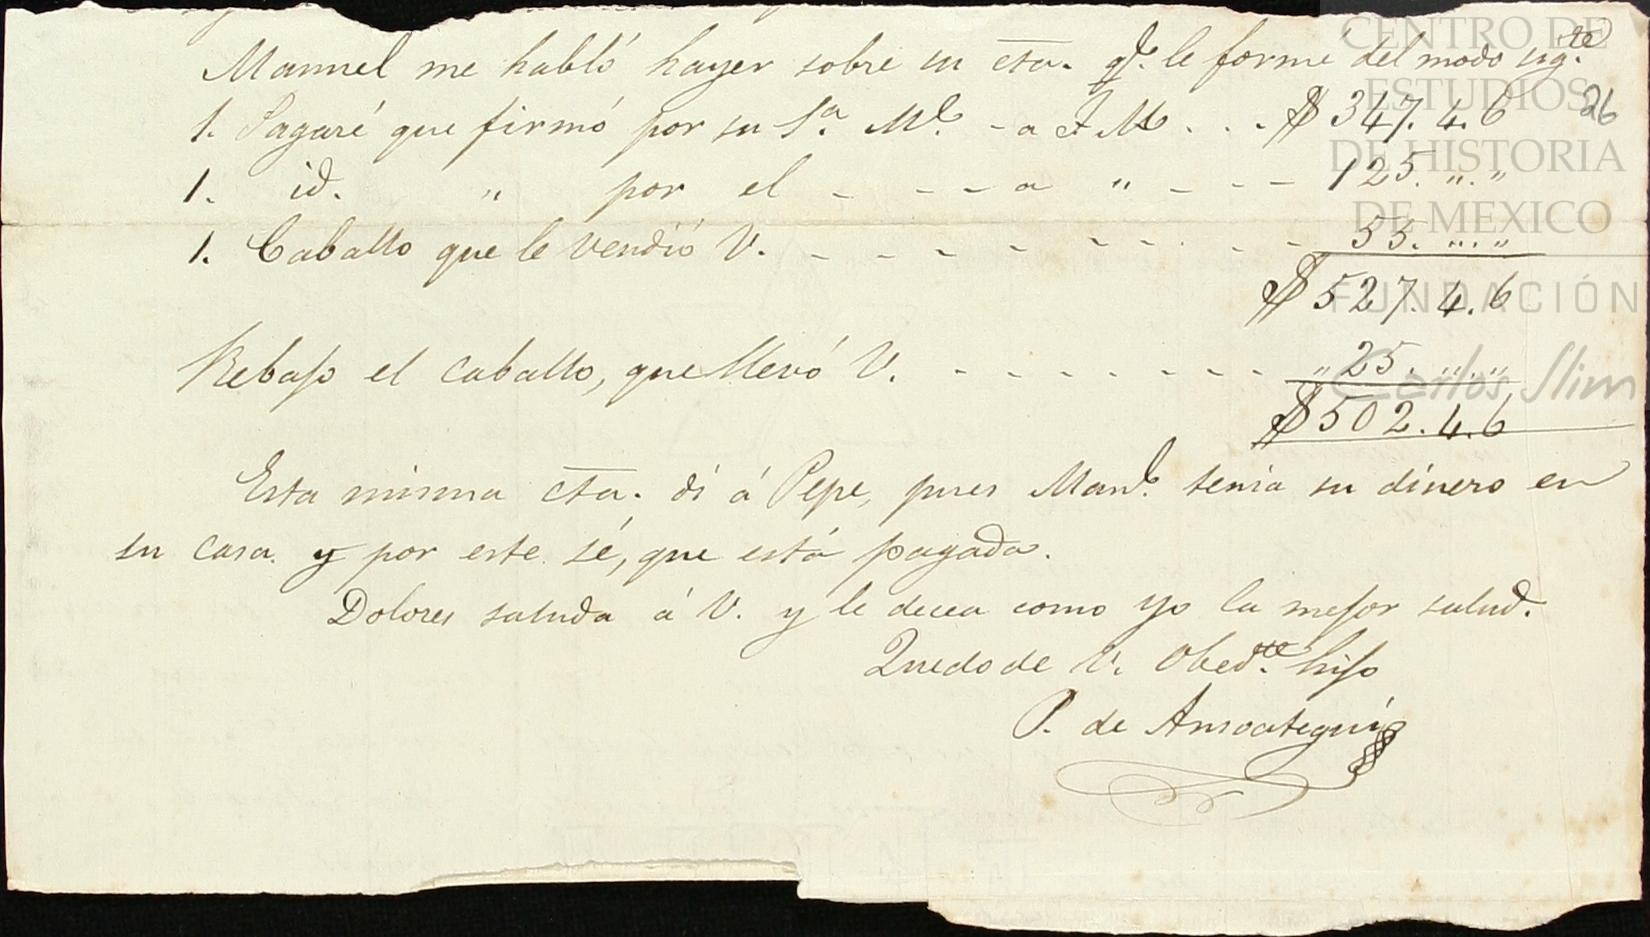 Manuel me habló hayer sobre su cta. qe. le formé del modo sigte.
1. Pagaré que firmó por su Sa. Ml. - a F. M. . . . $ 347. 4. 6
26
1. id. " por el - - - - a " - - - 125. ". "
1. Caballo que le vendió V. - - - - - - - - - - 55. ". "
$ 527. 4. 6
Rebajo el caballo, que llevó V. - - - - - - - - " 25. ". "
$ 502. 4. 6
Esta misma cta. di á Pepe, pues Manl. tenia su dinero en
su casa. y por este sé, que está pagada.
Dolores saluda á V. y le decea como yo la mejor salud.
Quedo de V. Obedte. hijo
P. de Ansoategui
CENTRO DE
ESTUDIOS
DE HISTORIA
DE MEXICO
FUNDACIÓN
Carlos Slim